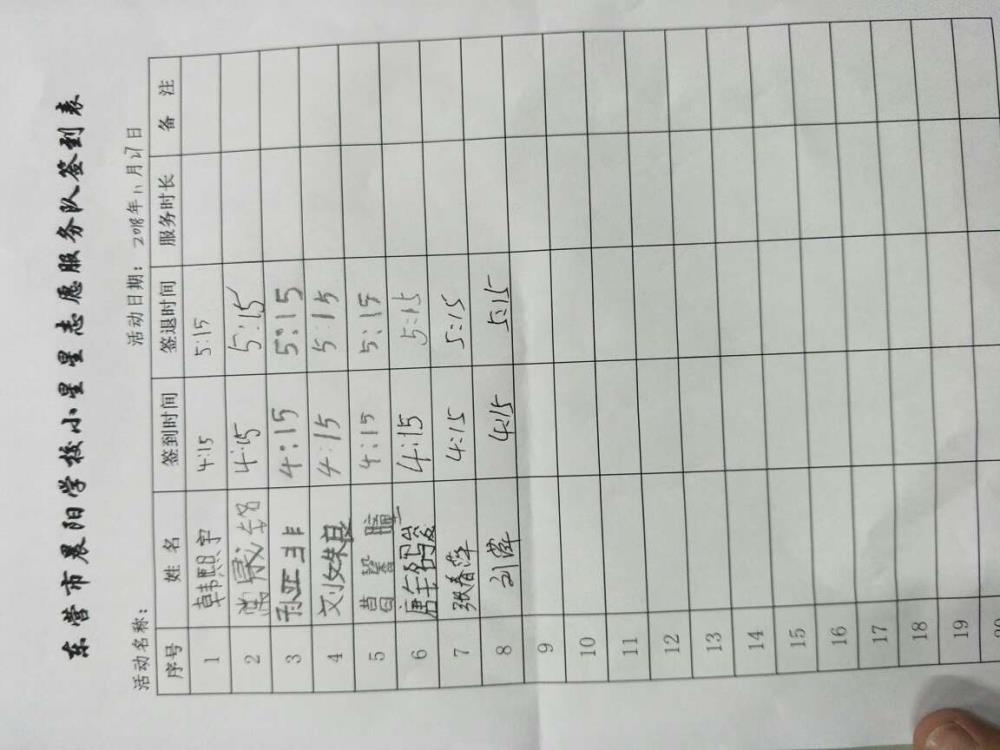 东营市晨阳学校小星星志愿服务队签到表
活动名称： 活动日期：2018年11月27日
序号 姓名 签到时间 签退时间 服务时长 备注
1 韩熙宇 4:15 5:15
2 4:15 5:15
3 孙亚菲 4:15 5:15
4 刘姝良 4:15 5:15
5 4:15 5:15
6 4:15 5:15
7 张春萍 4:15 5:15
8 刘萍 4:15 5:15
9
10
11
12
13
14
15
16
17
18
19
20